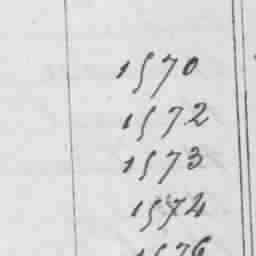 1570
1572
1573
1574
1576